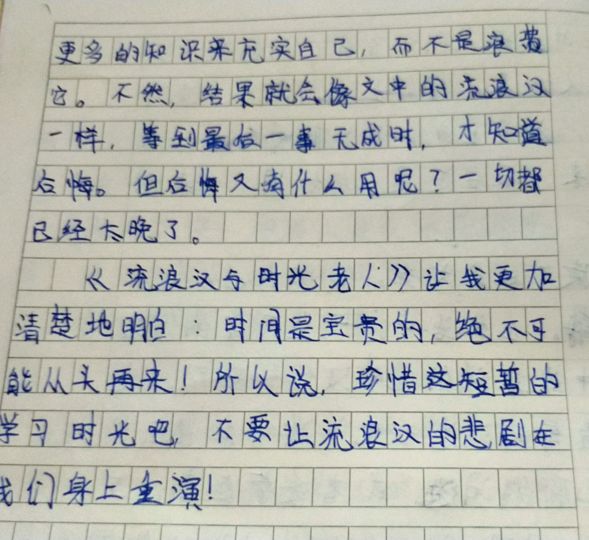 更多的知识来充实自己，而不是浪费
它。不然，结果就会像文中的流浪汉
一样，等到最后一事无成时，才知道
后悔。但后悔又有什么用呢？一切都
已经太晚了。
《流浪汉与时光老人》让我更加
清楚地明白：时间是宝贵的，绝不可
能从头再来！所以说，珍惜这短暂的
学习时光吧，不要让流浪汉的悲剧在
我们身上重演！